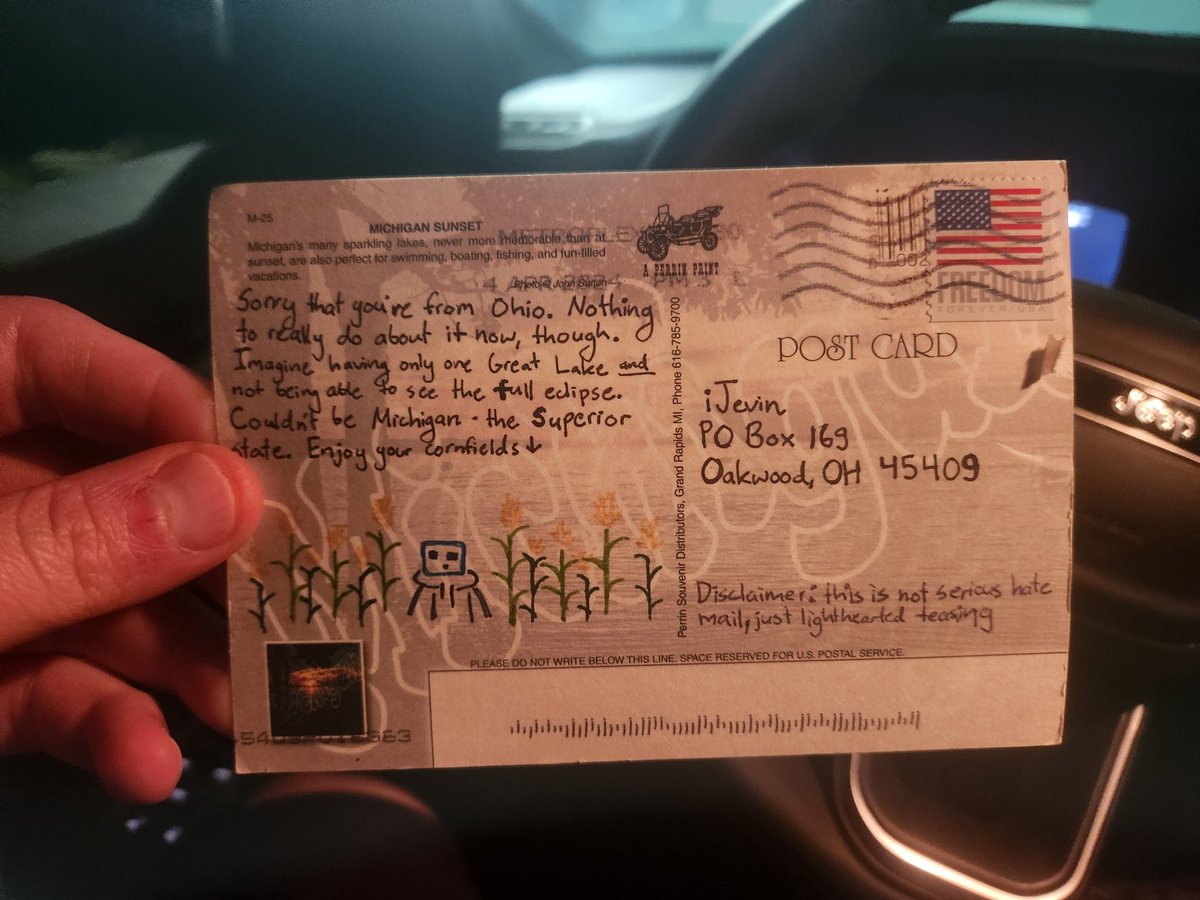 M-25
MICHIGAN SUNSET
Michigan's many sparkling lakes, never more memorable than at
sunset, are also perfect for swimming, boating, fishing, and fun-filled
vacations.
Photo © John Sutton
METROPLEX
4 APR 2024 PM 3 L
A PERRIN PRINT
FREEDOM
FOREVER/USA
Sorry that you're from Ohio. Nothing
to really do about it now, though.
Imagine having only one Great Lake and
not being able to see the full eclipse.
Couldn't be Michigan - the Superior
state. Enjoy your cornfields ↓
Perrin Souvenir Distributors, Grand Rapids MI, Phone 616-785-9700
POST CARD
iJevin
PO Box 169
Oakwood, OH 45409
Disclaimer: this is not serious hate
mail, just lighthearted teasing
PLEASE DO NOT WRITE BELOW THIS LINE. SPACE RESERVED FOR U.S. POSTAL SERVICE.
Jeep